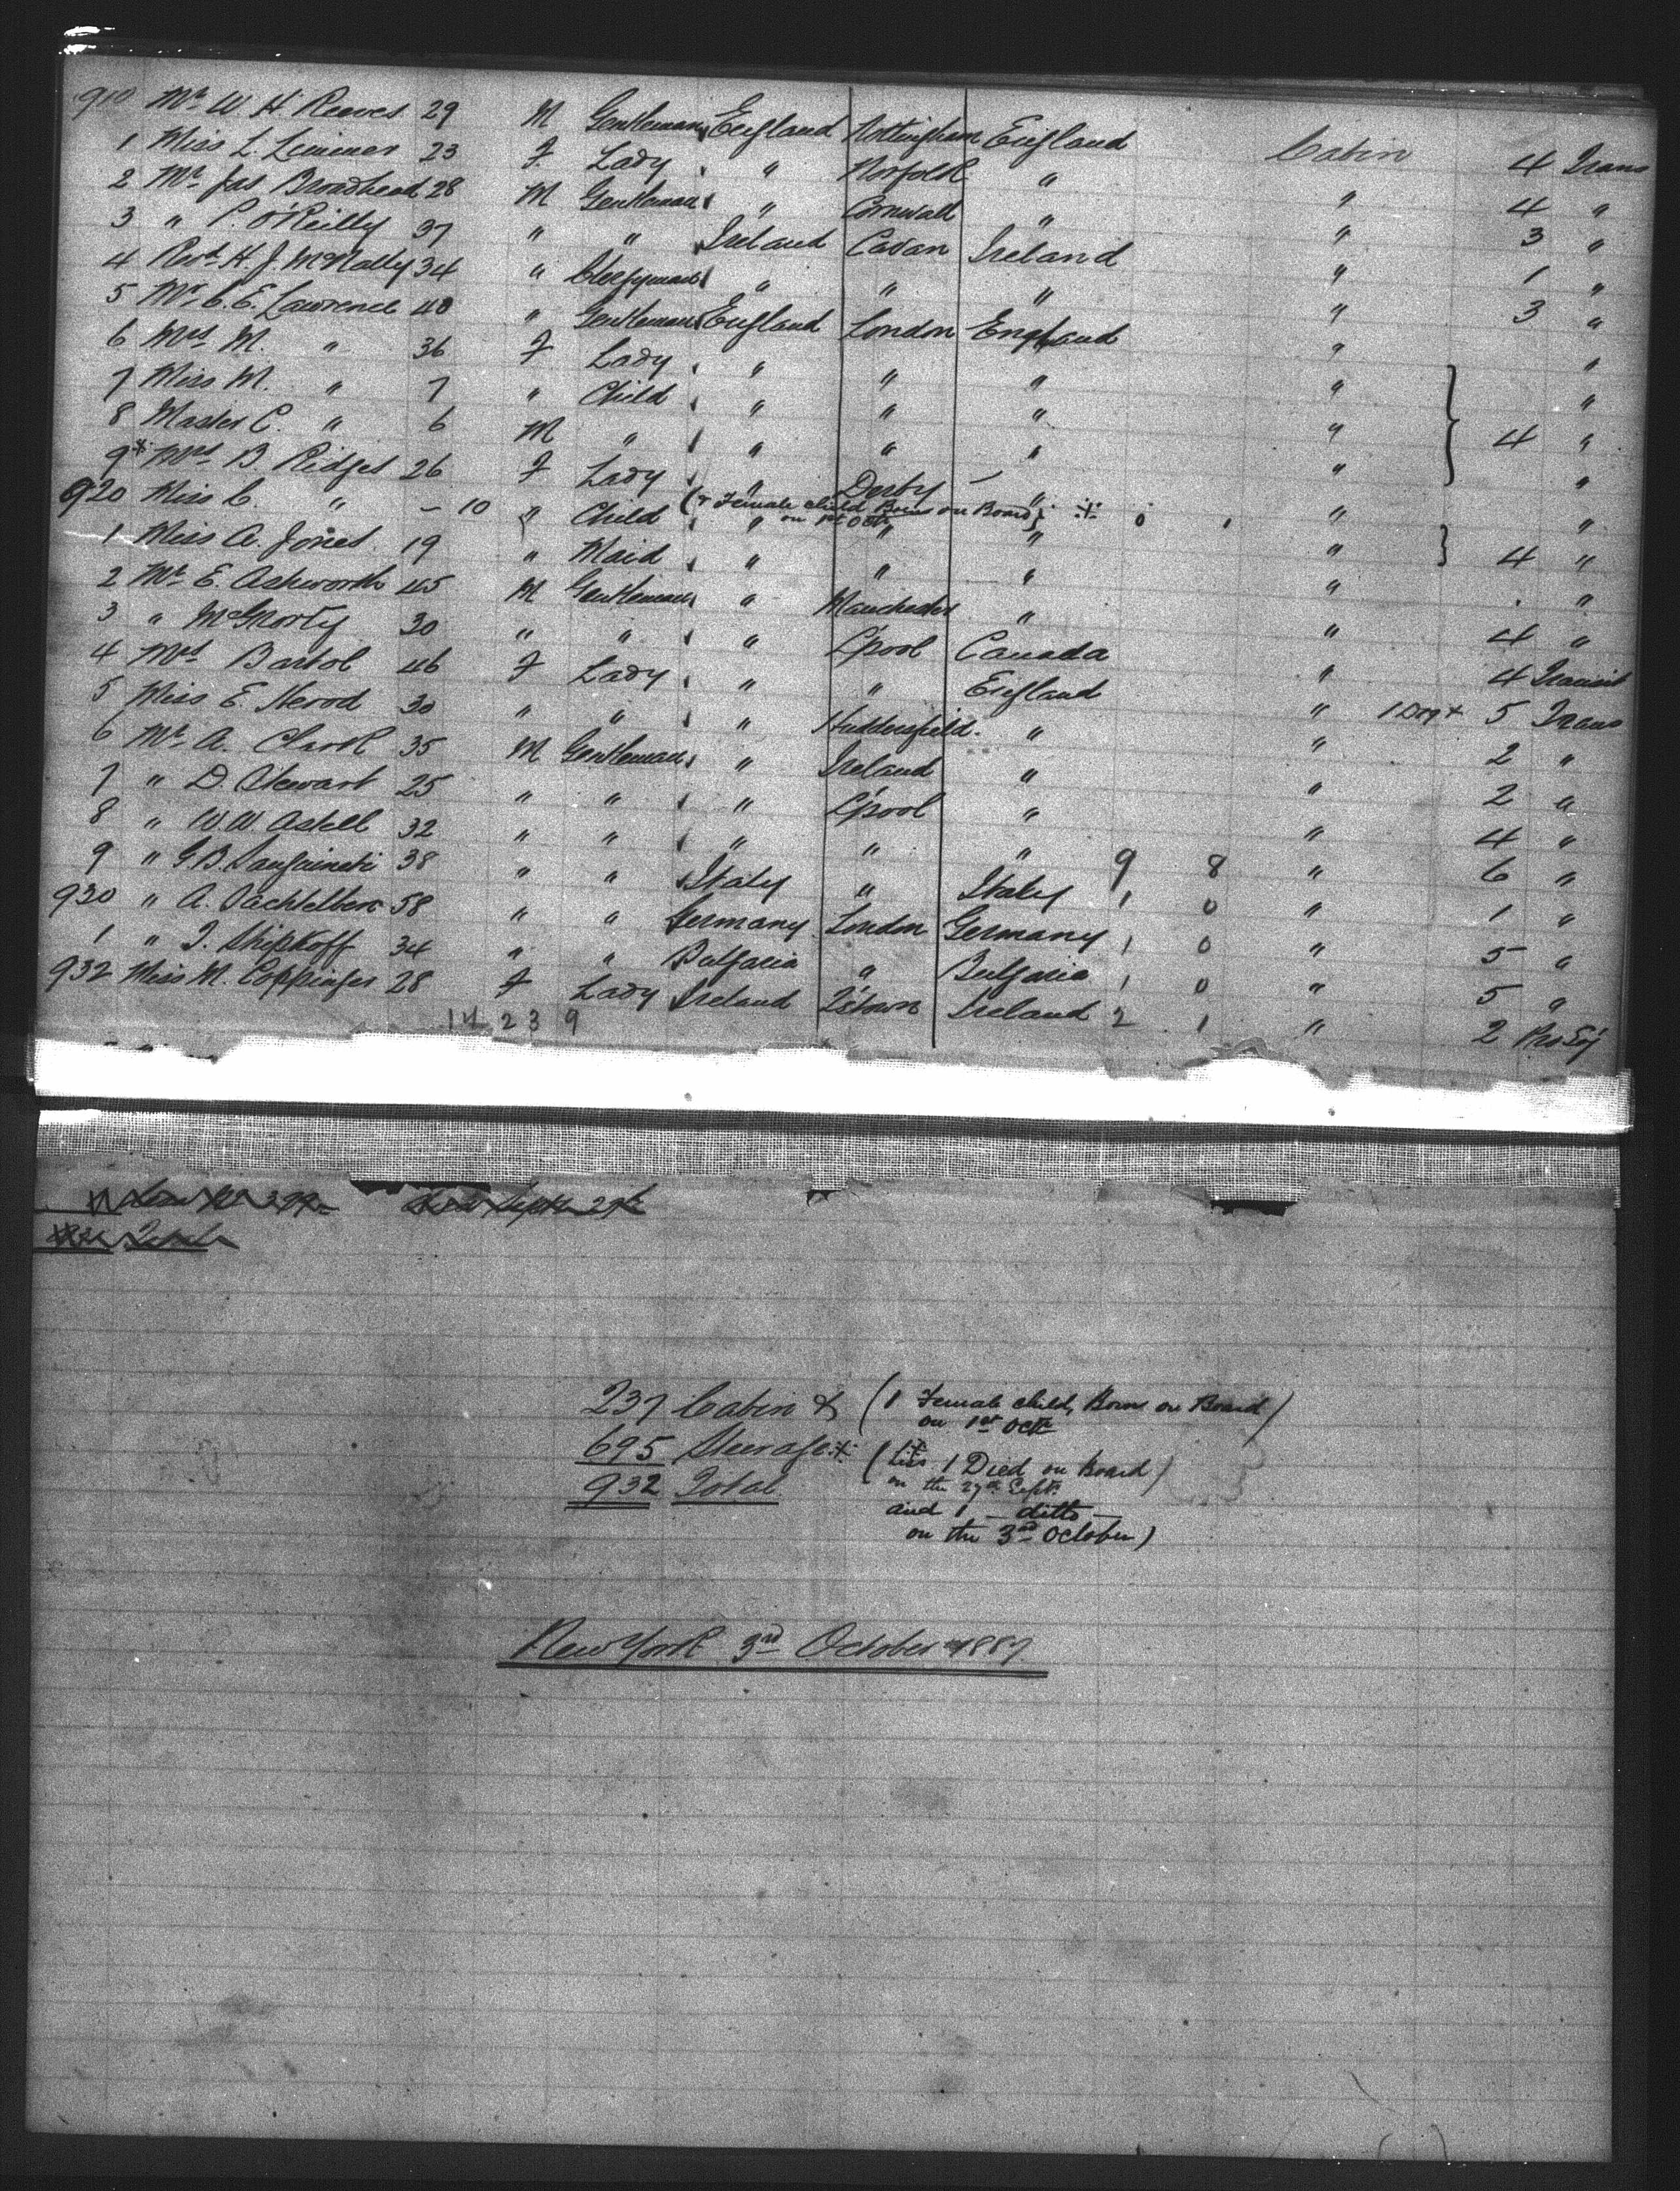 910 Mr W. H. Reeves 29 M Gentleman England Nottingham England Cabin 4 Trans
1 Miss L. Limmer 23 F Lady " Norfolk " " 4 "
2 Mr Jas Broadhead 28 M Gentleman " Cornwall " " 3 "
3 " P. O'Reilly 37 " " Ireland Cavan Ireland " 1 "
4 Revd H. J. McNally 34 " Clergyman " " " " 3 "
5 Mr C. E. Lawrence 40 " Gentleman England London England " "
6 Mrs M. " 36 F Lady " " " " "
7 Miss M. " 7 " Child " " " " 4 "
8 Master C. " 6 M " " " " " "
9* Mrs B. Ridges 26 F Lady " Derby " " "
(+ Female child Born on Board
on 1st Octr)
920 Miss C. " - 10 " Child " " " " 4 "
1 Miss A. Jones 19 " Maid " " " " "
2 Mr E. Ashworth 45 M Gentleman " Manchester " " 4 "
3 " McGrorty 30 " " " L'pool Canada " 4 Transit
4 Mrs Bartol 46 F Lady " " England " 5 Trans
5 Miss E. Herod 30 " " " Huddersfield " " 2 "
6 Mr A. Clark 35 M Gentleman " Ireland " " 2 "
7 " D. Stewart 25 " " " L'pool " " 4 "
8 " W. W. Astell 32 " " " " " 9 8 " 6 "
9 " G. B. Sanguineti 38 " " Italy " Italy 1 0 " 1 "
930 " A. 58 " " Germany London Germany 1 0 " 5 "
1 " I. Shipkoff 34 " " Bulgaria " Bulgaria 1 0 " 5 "
932 Miss M. Coppinger 28 F Lady Ireland Q'stown Ireland 2 1 " 2 Pro Soj
14 23 9
237 Cabin & (1 Female child, Born on Board
on 1st Octr)
695 Steerage (Less 1 Died on Board
on the 29th Sept.
932 Total
and 1 - ditto -
on the 3rd October)
New York 3rd October 1887